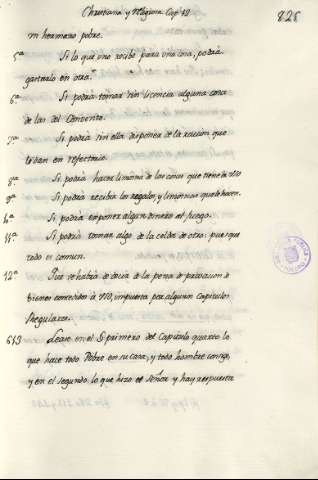 Christiana y Religiosa Cap. VI
828
un hermano pobre.
5ª Si lo que uno recibe para una cosa, podría
gastarlo en otra.
6ª Si podría tomar sin licencia alguna cosa
de las del Convento.
7ª Si podría sin ella disponer de la racion que
le dan en refectorio.
8ª Si podría hacer limosna de las cosas que tiene de uso
9ª Si podría recibir los regalos, y limosnas que le hacen.
Si podría exponer algun dinero al juego.
11ª Si podría tomar algo de la celda de otro: pues que
todo es comun.
12ª Que se habia de decir de la pena de privacion de
bienes concedidos à uso, impuesta por algunos Capitulos
Regulares.
613 Lease en el § primero del Capitulo quarto lo
que hace todo Pobre en su casa, y todo hombre consigo,
y en el segundo lo que hizo el Señor y hay respuesta